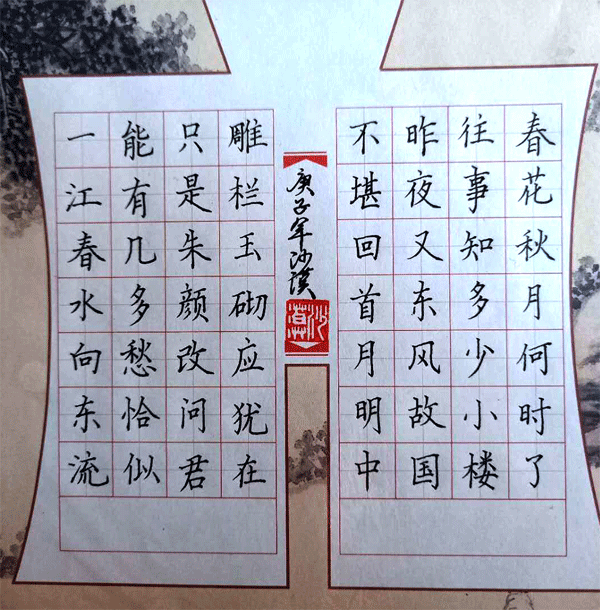 春花秋月何时了
往事知多少小楼
昨夜又东风故国
不堪回首月明中
雕栏玉砌应犹在
只是朱颜改问君
能有几多愁恰似
一江春水向东流
庚子年沙漠
沙漠